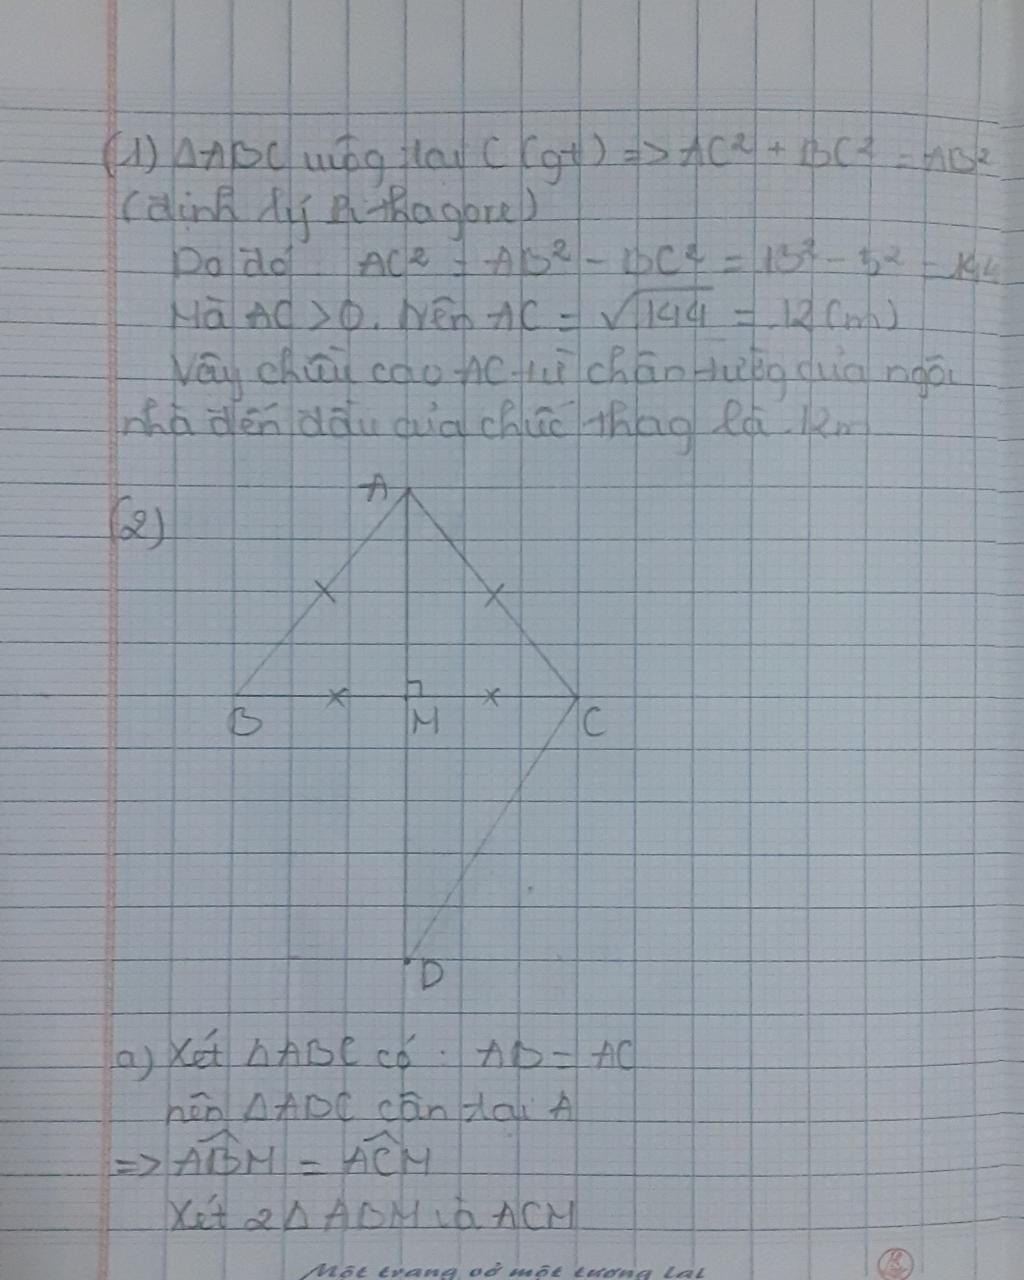 (1) ΔABC vuôg tại C (gt) => AC² + BC² = AB²
(định lý Pi-thagore)
Do đó AC² = AB² - BC² = 13² - 5² = 144
Mà AC > 0. Nên AC = √144 = 12 (m)
Vậy chiều cao AC từ chân tườg của ngôi
nhà đến đầu của chiếc thag là 12m
(2)
A
B M C
D
a) Xét ΔABC có : AB = AC
nên ΔABC cân tại A
=> ABM = ACM
Xét 2Δ ABM và ACM
Một trang vở một tương lai